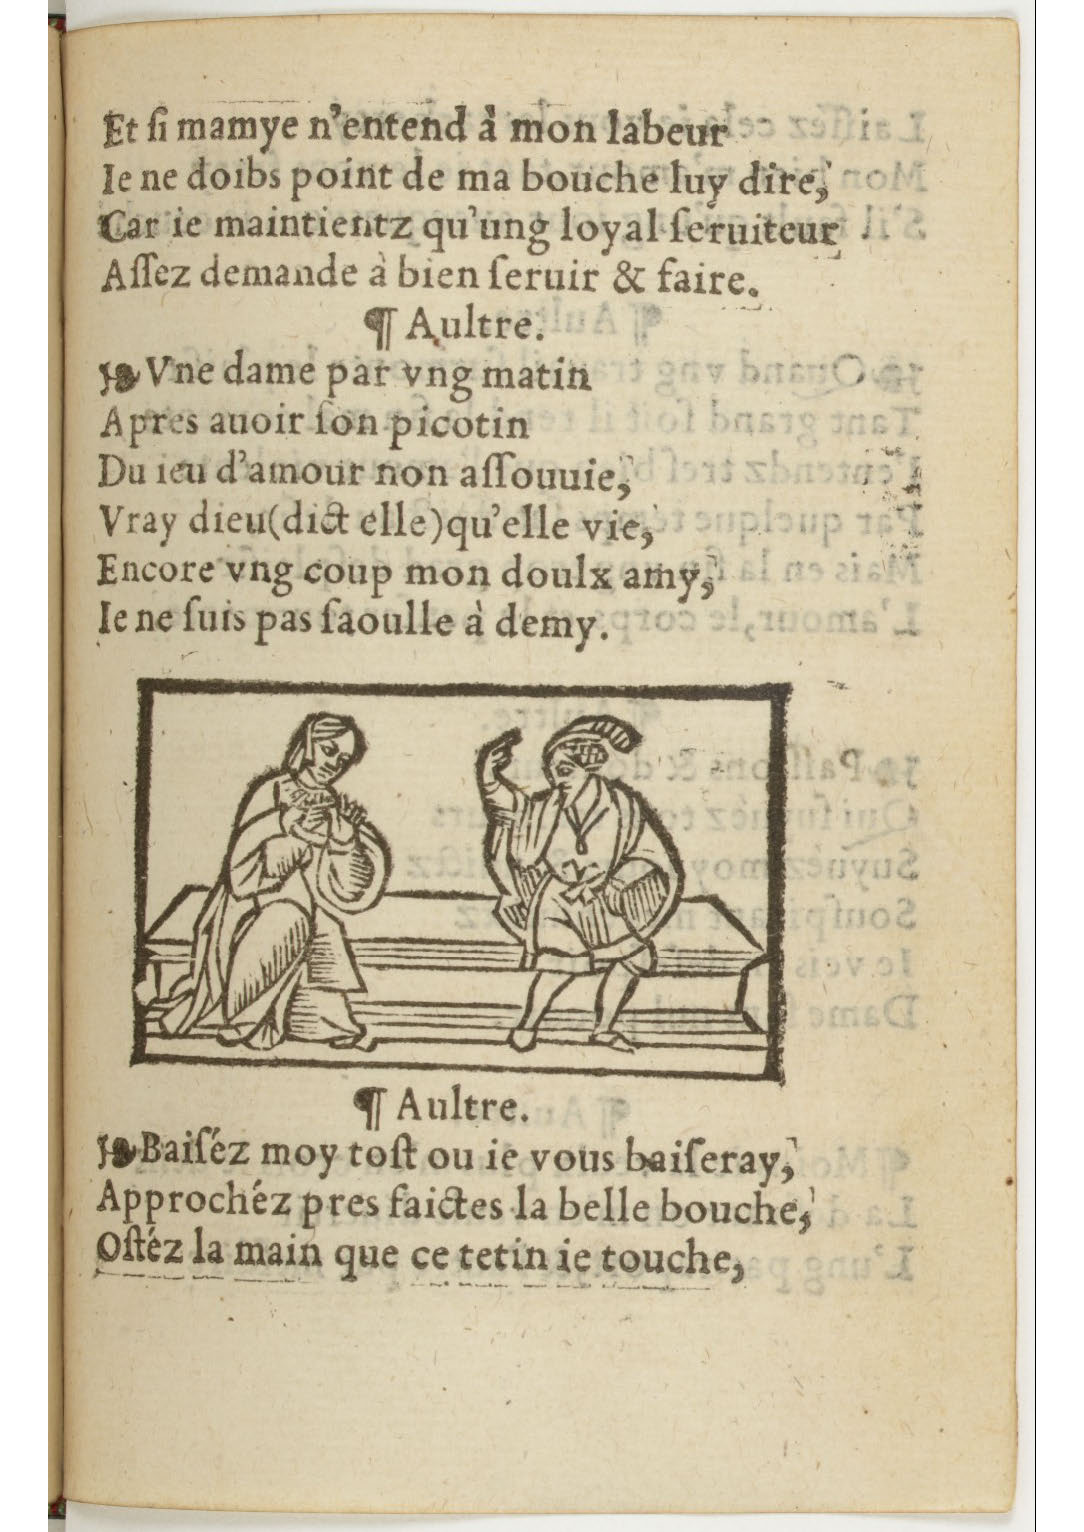 Et ſi mamye n’entend à mon labeur
Ie ne doibs point de ma bouche luy dire,
Car ie maintientz qu’ung loyal ſeruiteur
Aſſez demande à bien ſeruir & faire.
¶ Aultre.
❧ Vne dame par vng matin
Apres auoir ſon picotin
Du ieu d’amour non aſſouuie,
Vray dieu(dict elle)qu’elle vie,
Encore vng coup mon doulx amy,
Ie ne ſuis pas ſaoulle à demy.
¶ Aultre.
❧ Baiſéz moy toſt ou ie vous baiſeray,
Approchéz pres faictes la belle bouche,
Oſtéz la main que ce tetin ie touche,